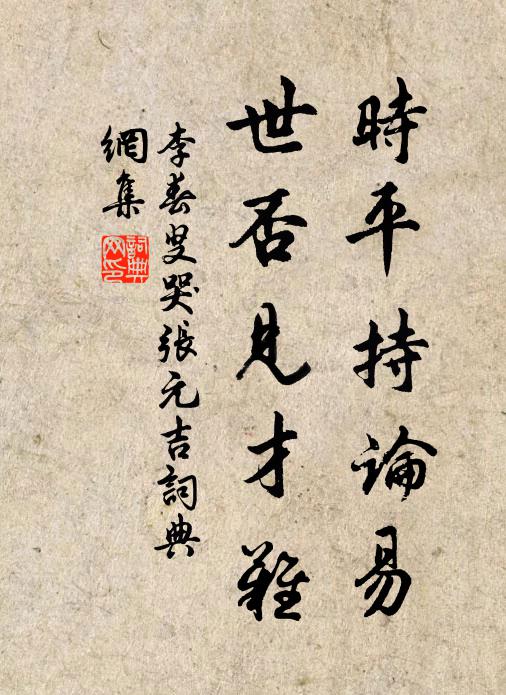 時平持論易
世否見才難
李春叟哭張元吉詞典
網集
詞典
网印